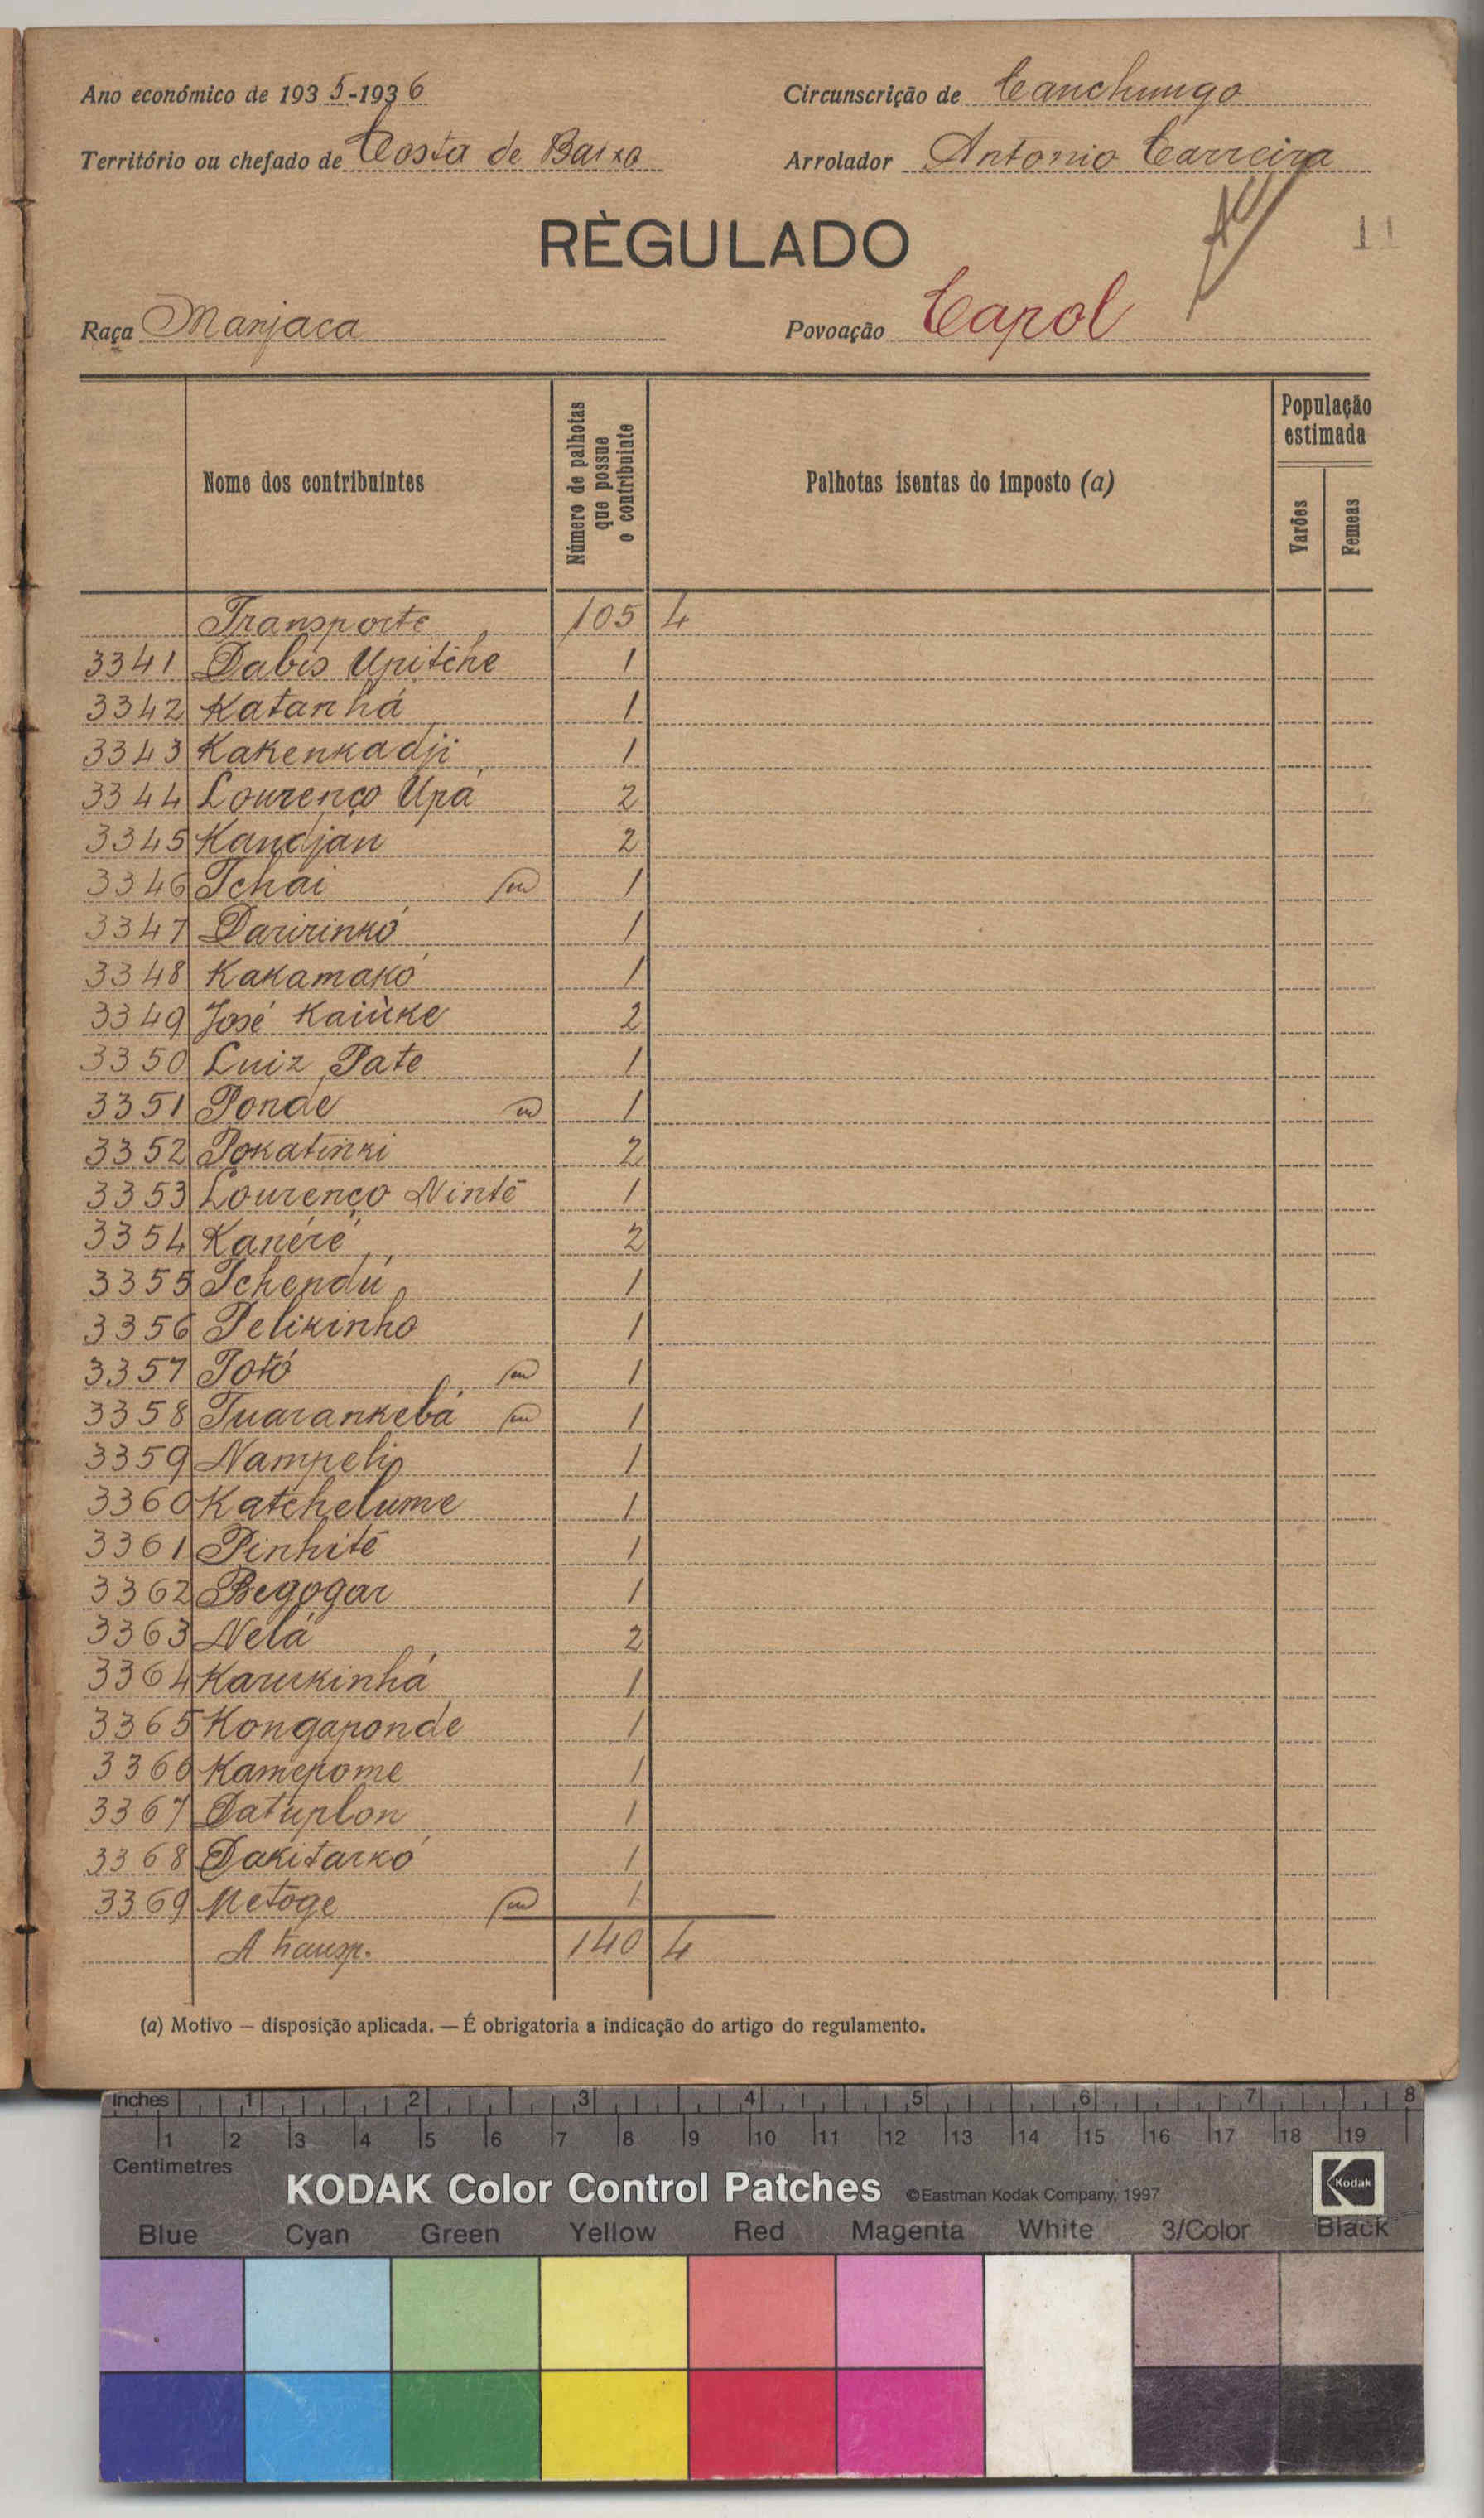 Ano económico de 1935-1936
Circunscrição de Canchungo
Território ou chefado de Costa de Baixo
Arrolador Antonio Carreira
RÈGULADO
11
Raça Manjaca
Povoação Capol
Nome dos contribuintes
Número de palhotas que possue o contribuinte
Palhotas isentas do imposto (a)
População estimada
Varões
Femeas
Transporte 105 4
3341 Dabis Upitche 1
3342 Katanhá 1
3343 Kakenkadji 1
3344 Lourenço Upá 2
3345 Kandjan 2
3346 Tchai m 1
3347 Daririnkó 1
3348 Kakamakó 1
3349 José Kaiùke 2
3350 Luiz Pate 1
3351 Ponde m 1
3352 Pokatinki 2
3353 Lourenço Nintê 1
3354 Kanéré 2
3355 Tchendú 1
3356 Pelikinho 1
3357 Totó m 1
3358 Tuarankebá m 1
3359 Nampeli 1
3360 Katchelume 1
3361 Pinhitê 1
3362 Begogar 1
3363 Nelá 2
3364 Karukinhá 1
3365 Kongaponde 1
3366 Kamepome 1
3367 Datuplon 1
3368 Dakitarkó 1
3369 Metoge m 1
A transp. 140 4
(a) Motivo — disposição aplicada. — É obrigatoria a indicação do artigo do regulamento.
Inches 1 2 3 4 5 6 7 8
1 2 3 4 5 6 7 8 9 10 11 12 13 14 15 16 17 18 19
Centimetres
KODAK Color Control Patches ©Eastman Kodak Company, 1997 Kodak
Blue Cyan Green Yellow Red Magenta White 3/Color Black